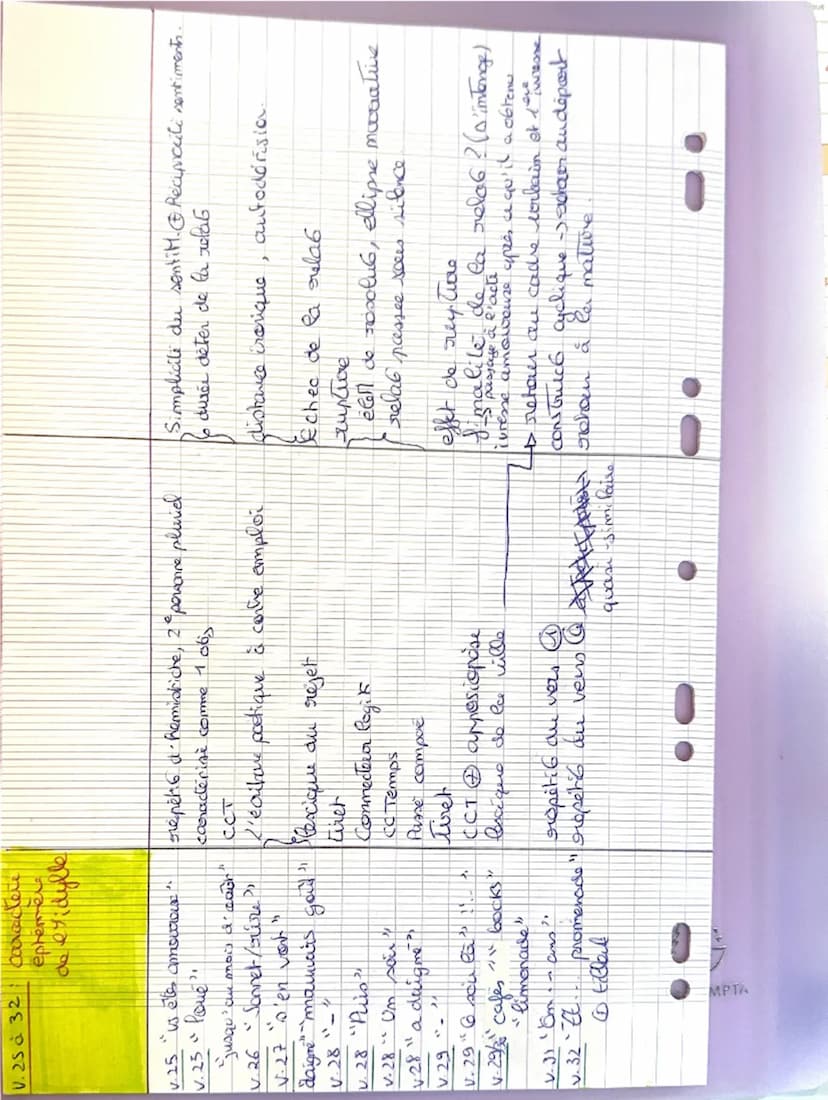 V.25 à 32 : caractère
éphémère
de l'idylle
V.25 "vs êtes amoureux" répét° d'hémistiche, 2e personne pluriel Simplicité du sentiM. ⊕ Réciprocité sentiments.
V.25 "Loué" caractérisé comme 1 obj durée déter de la relat°
"jusqu'au mois d'août" CCT
V.26 "Sonnet/rire" L'écriture poétique à contre emploi distance ironique, autodérision.
V.27 "s'en vont"
"mauvais goût" Lexique du rejet Echec de la relat°
V.28 "-" Tiret rupture
V.28 "Puis" Connecteur logik éléM de résolut°, ellipse narrative
V.28 "Un soir" CC Temps relat° passée sous silence
V.28 "a daigné" Passé composé
V.29 "-" Tiret effet de rupture
V.29 "Ce soir là" "..." CCT ⊕ aposiopèse finalité de la relat° ? (à l'image)
→ passage à l'acte
ivresse amoureuse après ce qu'il a obtenu
V.29 "cafés" "bocks" lexique de la ville → retour au cadre urbain et 1ère ivresse
"limonade"
V.31 "On ... ans" répétit° du vers ① construct° cyclique → retour au départ
V.32 "Et ... promenade" répétit° du vers quasi-similaire retour à la nature.
⊕ tilleul
MPTA